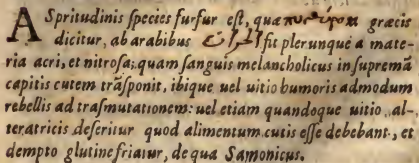 ASpritudinis ſpecies furfur eſt, quæ græcis
dicitur, ab arabibus fit plerunquè a mate-
ria acri, et nitroſa; quam ſanguis melancholicus in ſupremã
capitis cutem trãſponit, ibique uel uitio humoris admodum
rebellis ad traſmutationem: uel etiam quandoque uitio al-
teratricis deſeritur quod alimentum cutis eſſe debebant, et
dempto glutine friatur, de qua Samonicus.